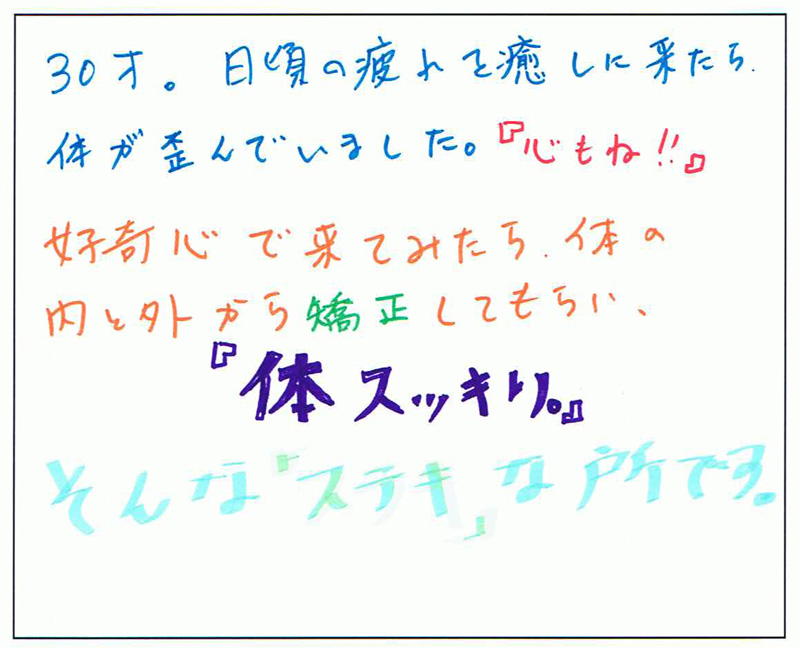 30才。日頃の疲れを癒しに来たら、
体が歪んでいました。『心もね!!』
好奇心で来てみたら、体の
内と外から矯正してもらい、
『体スッキリ。』
そんな『ステキ』な所です。